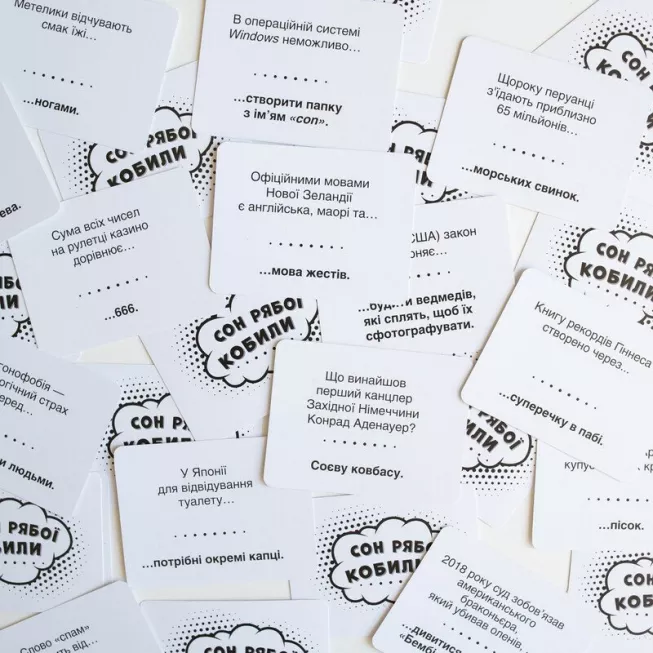 Метелики відчувають
смак їжі...
...ногами.
В операційній системі
Windows неможливо...
...створити папку
з ім'ям «con».
Щороку перуанці
з'їдають приблизно
65 мільйонів...
...морських свинок.
СОН РЯБОЇ
КОБИЛИ
Офіційними мовами
Нової Зеландії
є англійська, маорі та...
...мова жестів.
Сума всіх чисел
на рулетці казино
дорівнює...
...666.
США) закон
...будити ведмедів,
які сплять, щоб їх
сфотографувати.
СОН РЯБОЇ
КОБИЛИ
СОН РЯБОЇ
КОБИЛИ
Книгу рекордів Гіннеса
створено через...
...суперечку в пабі.
Що винайшов
перший канцлер
Західної Німеччини
Конрад Аденауер?
Соєву ковбасу.
людьми.
РЯБОЇ
КОБИЛИ
У Японії
для відвідування
туалету...
...потрібні окремі капці.
...пісок.
СОН РЯБОЇ
КОБИЛИ
СОН РЯБО
КОБИЛИ
2018 року суд зобов'язав
американського
браконьєра,
який убивав оленів,
...дивитися
СОН
КОБИ
Слово «спам»
від...